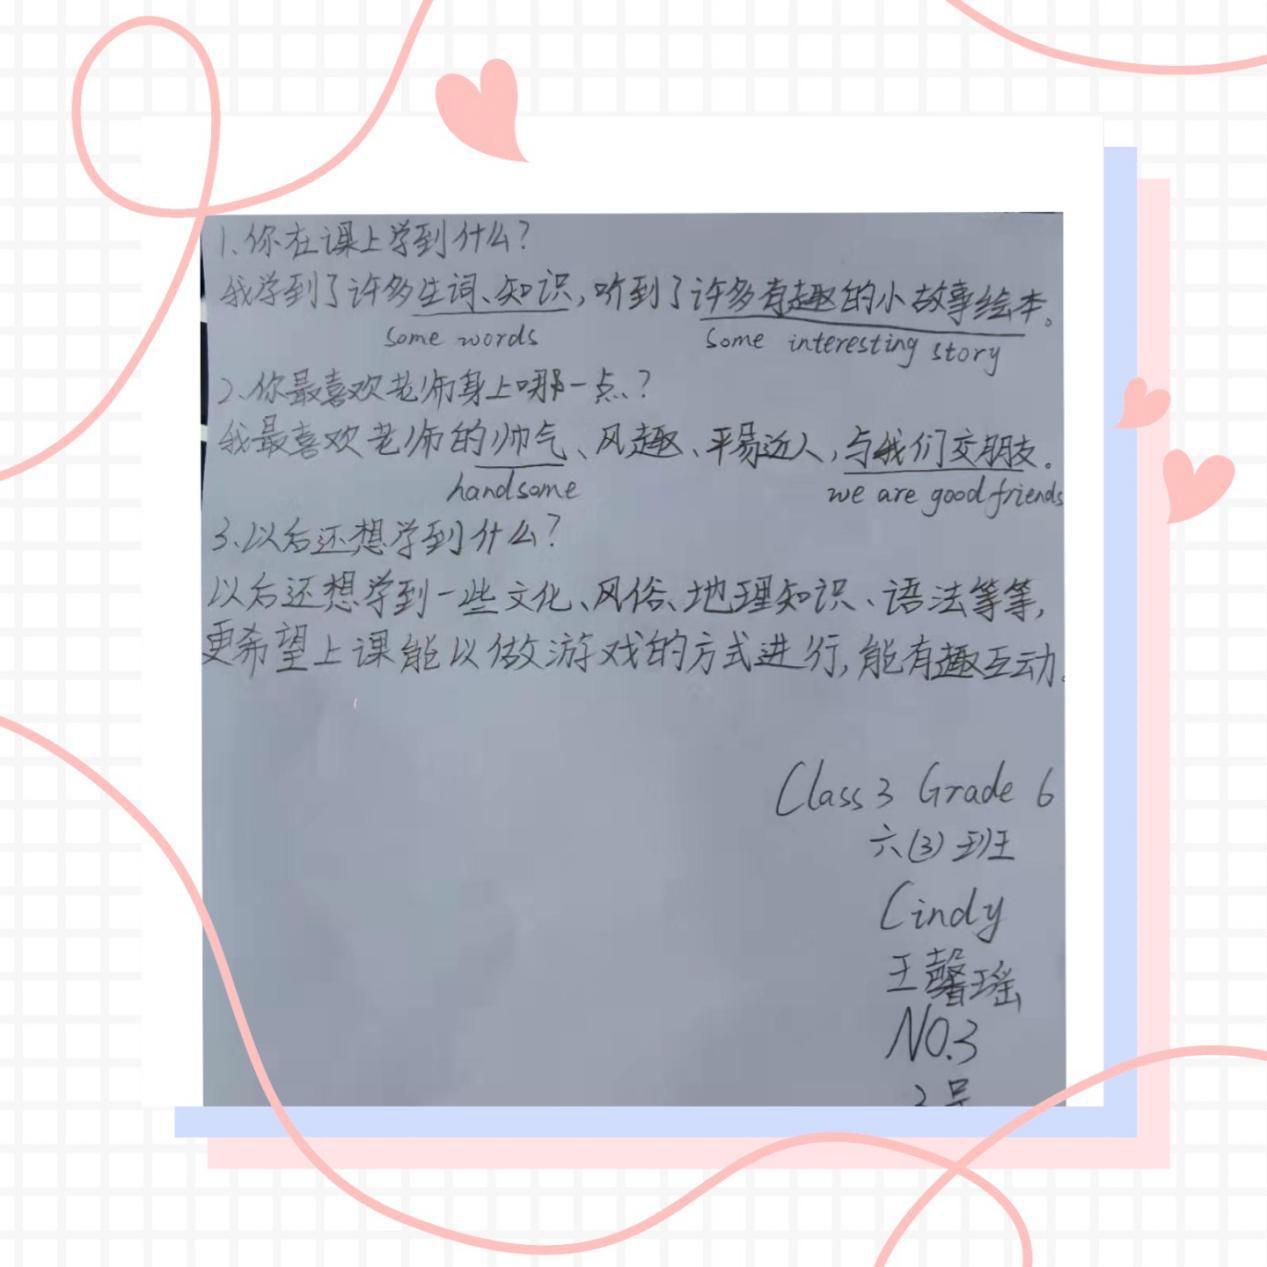 1.你在课上学到什么?
我学到了许多生词、知识,听到了许多有趣的小故事绘本。
some words some interesting story
2.你最喜欢老师身上哪一点?
我最喜欢老师的帅气、风趣、平易近人,与我们交朋友。
handsome we are good friends
3.以后还想学到什么?
以后还想学到一些文化、风俗、地理知识、语法等等,
更希望上课能以做游戏的方式进行,能有趣互动。
Class 3 Grade 6
六(3)班
Cindy
王馨瑶
NO.3
3号